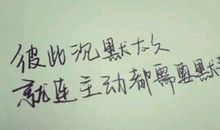 彼此沉默太久
就连主动都需要默